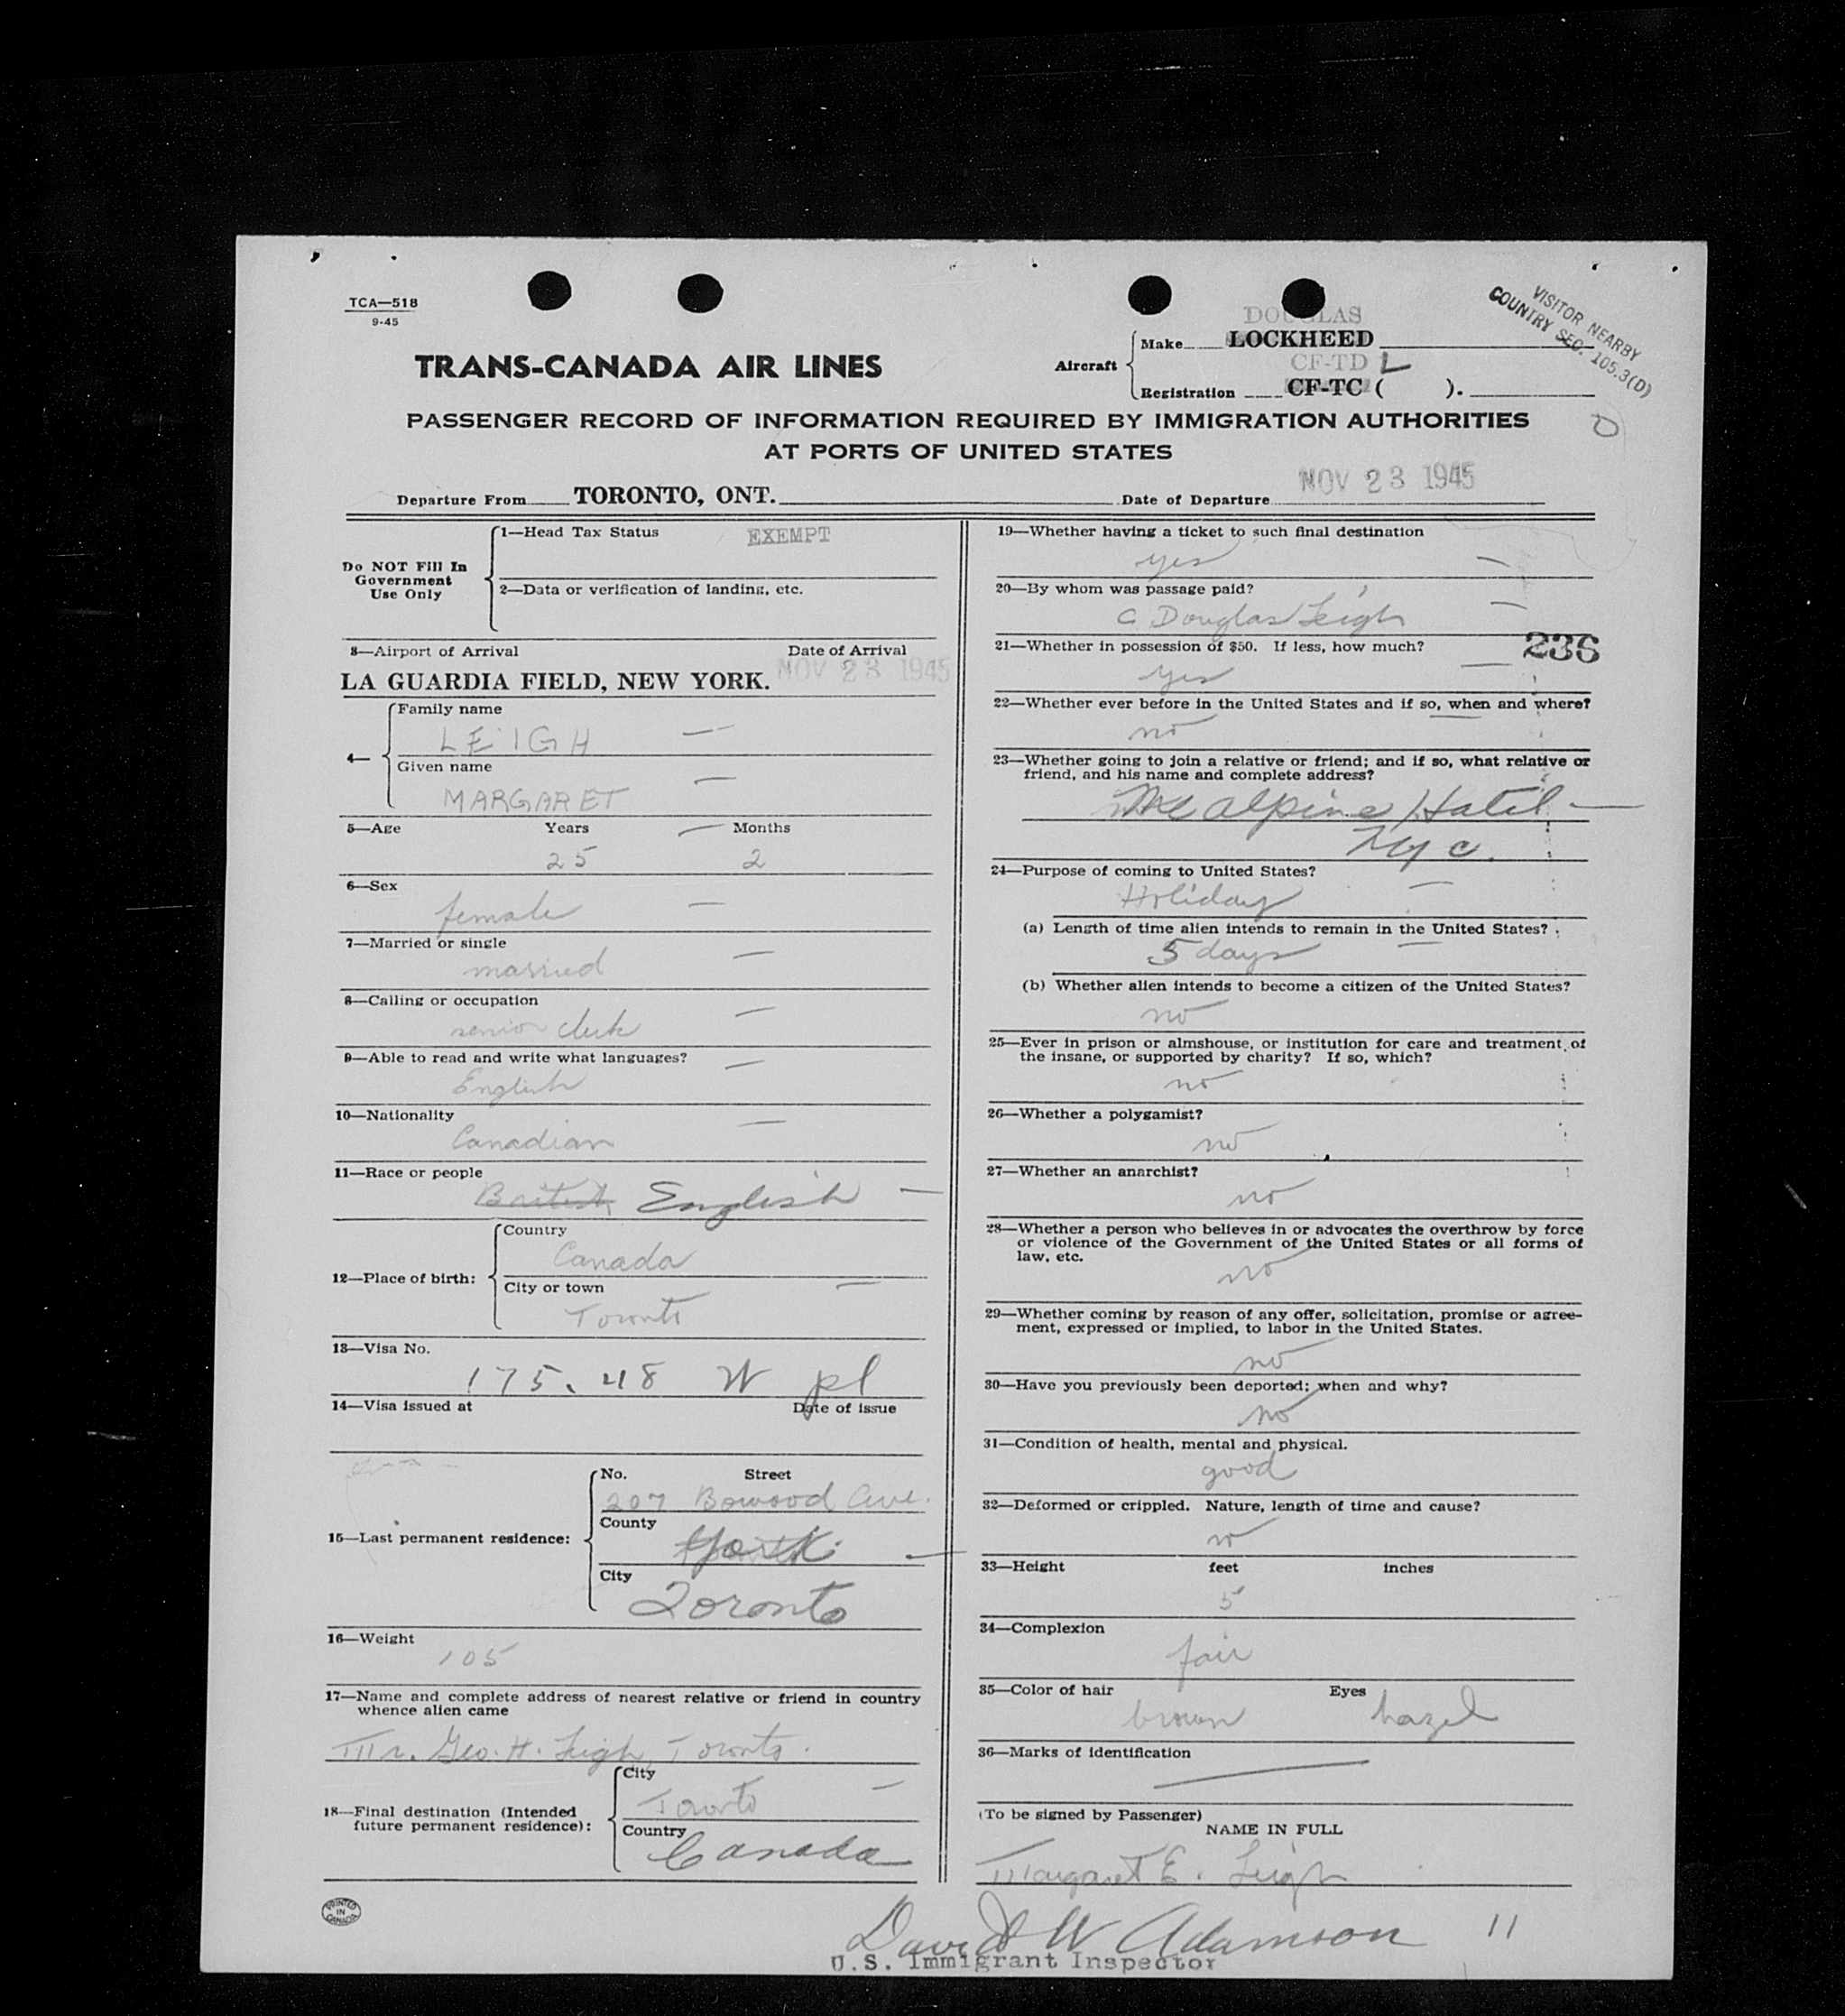 TCA—518
9-45
VISITOR NEARBY
COUNTRY SEC. 105.3(D)
DOUGLAS
Aircraft Make LOCKHEED
CF-TD L
Registration CF-TC ( ).
TRANS-CANADA AIR LINES
PASSENGER RECORD OF INFORMATION REQUIRED BY IMMIGRATION AUTHORITIES
AT PORTS OF UNITED STATES
Departure From TORONTO, ONT. Date of Departure NOV 23 1945
Do NOT Fill In
Government
Use Only
1—Head Tax Status EXEMPT
2—Data or verification of landing, etc.
3—Airport of Arrival Date of Arrival
LA GUARDIA FIELD, NEW YORK. NOV 23 1945
4— Family name
LEIGH
Given name
MARGARET
5—Age Years Months
25 2
6—Sex
female
7—Married or single
married
8—Calling or occupation
senior clerk
9—Able to read and write what languages?
English
10—Nationality
Canadian
11—Race or people
British English
12—Place of birth: Country
Canada
City or town
Toronto
13—Visa No.
175.48 W pl
14—Visa issued at Date of issue
15—Last permanent residence: No. Street
207 Bowood Ave.
County
York
City
Toronto
16—Weight
105
17—Name and complete address of nearest relative or friend in country
whence alien came
Mr. Geo. H. Leigh, Toronto.
18—Final destination (Intended
future permanent residence):
City
Toronto
Country
Canada
PRINTED
IN
CANADA
19—Whether having a ticket to such final destination
yes
20—By whom was passage paid?
C. Douglas Leigh
21—Whether in possession of $50. If less, how much? 236
yes
22—Whether ever before in the United States and if so, when and where?
no
23—Whether going to join a relative or friend; and if so, what relative or
friend, and his name and complete address?
McAlpine Hotel
NYC.
24—Purpose of coming to United States?
Holiday
(a) Length of time alien intends to remain in the United States?
5 days
(b) Whether alien intends to become a citizen of the United States?
no
25—Ever in prison or almshouse, or institution for care and treatment of
the insane, or supported by charity? If so, which?
no
26—Whether a polygamist?
no
27—Whether an anarchist?
no
28—Whether a person who believes in or advocates the overthrow by force
or violence of the Government of the United States or all forms of
law, etc.
no
29—Whether coming by reason of any offer, solicitation, promise or agree-
ment, expressed or implied, to labor in the United States.
no
30—Have you previously been deported; when and why?
no
31—Condition of health, mental and physical.
good
32—Deformed or crippled. Nature, length of time and cause?
no
33—Height feet inches
5
34—Complexion
fair
35—Color of hair Eyes
brown hazel
36—Marks of identification
(To be signed by Passenger)
NAME IN FULL
Margaret E. Leigh
David W Adamson 11
U.S. Immigrant Inspector